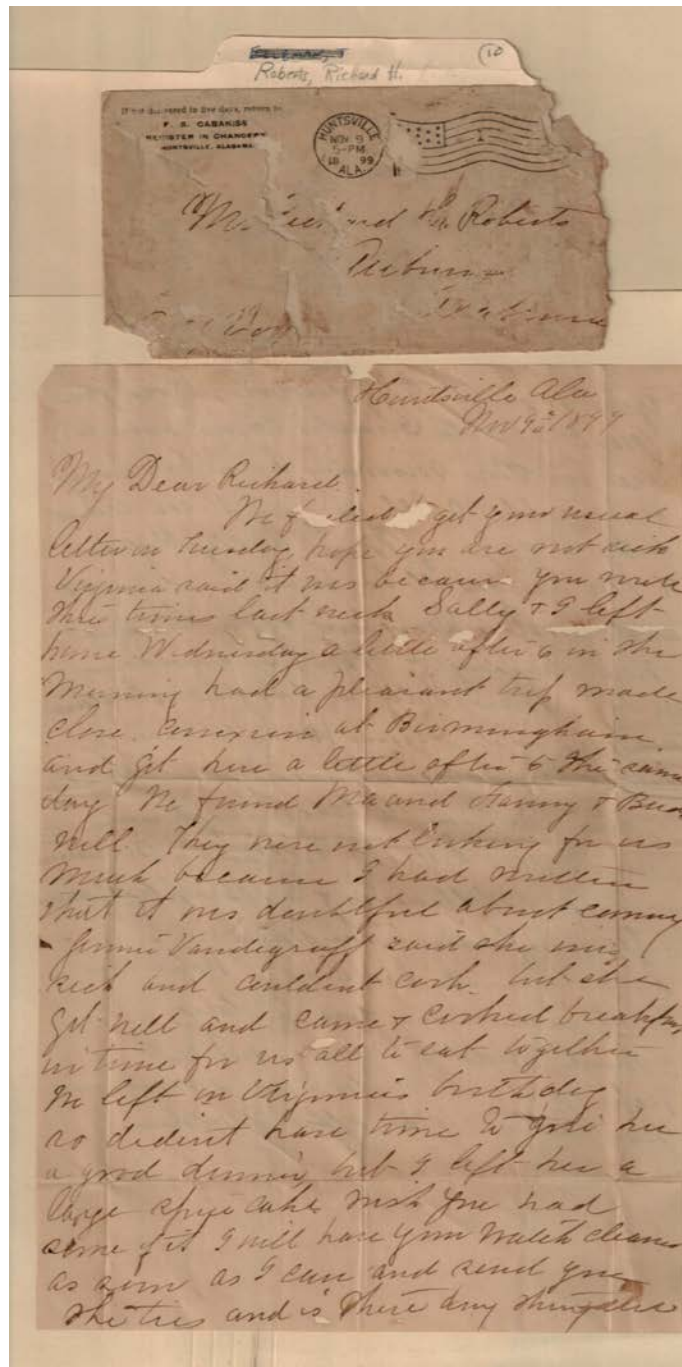 10
Roberts, Richard H.
If not delivered in five days, return to
F. S. CABANISS
REGISTER IN CHANCERY
HUNTSVILLE, ALABAMA
HUNTSVILLE
NOV. 9
5-PM
18 99
ALA.
1
Roberts
Auburn
Alabama
Huntsville Ala
Nov 9th 1899
My Dear Richard.
We get your usual
letter on Tuesday, hope you are not sick
Virginia said it was because you wrote
three times last week. Sally & I left
home Wednesday a little after 6 in the
Morning had a pleasant trip made
close at Birmingham
and got here a little after 6 the same
day We found Ma and Fanny &
well. They were not looking for us
much because I had written
that it was doubtful about coming
Jennie Vandegraff said she was
sick and couldent cook. but she
got well and came & cooked breakfast
in time for us all to eat together
We left on Virginia's birthday
so dident have time to give her
a good dinner but I left her a
large spice cake, wish you had
some of it I will have your watch cleaned
as soon as I can and send you
the ties and is there any thing else